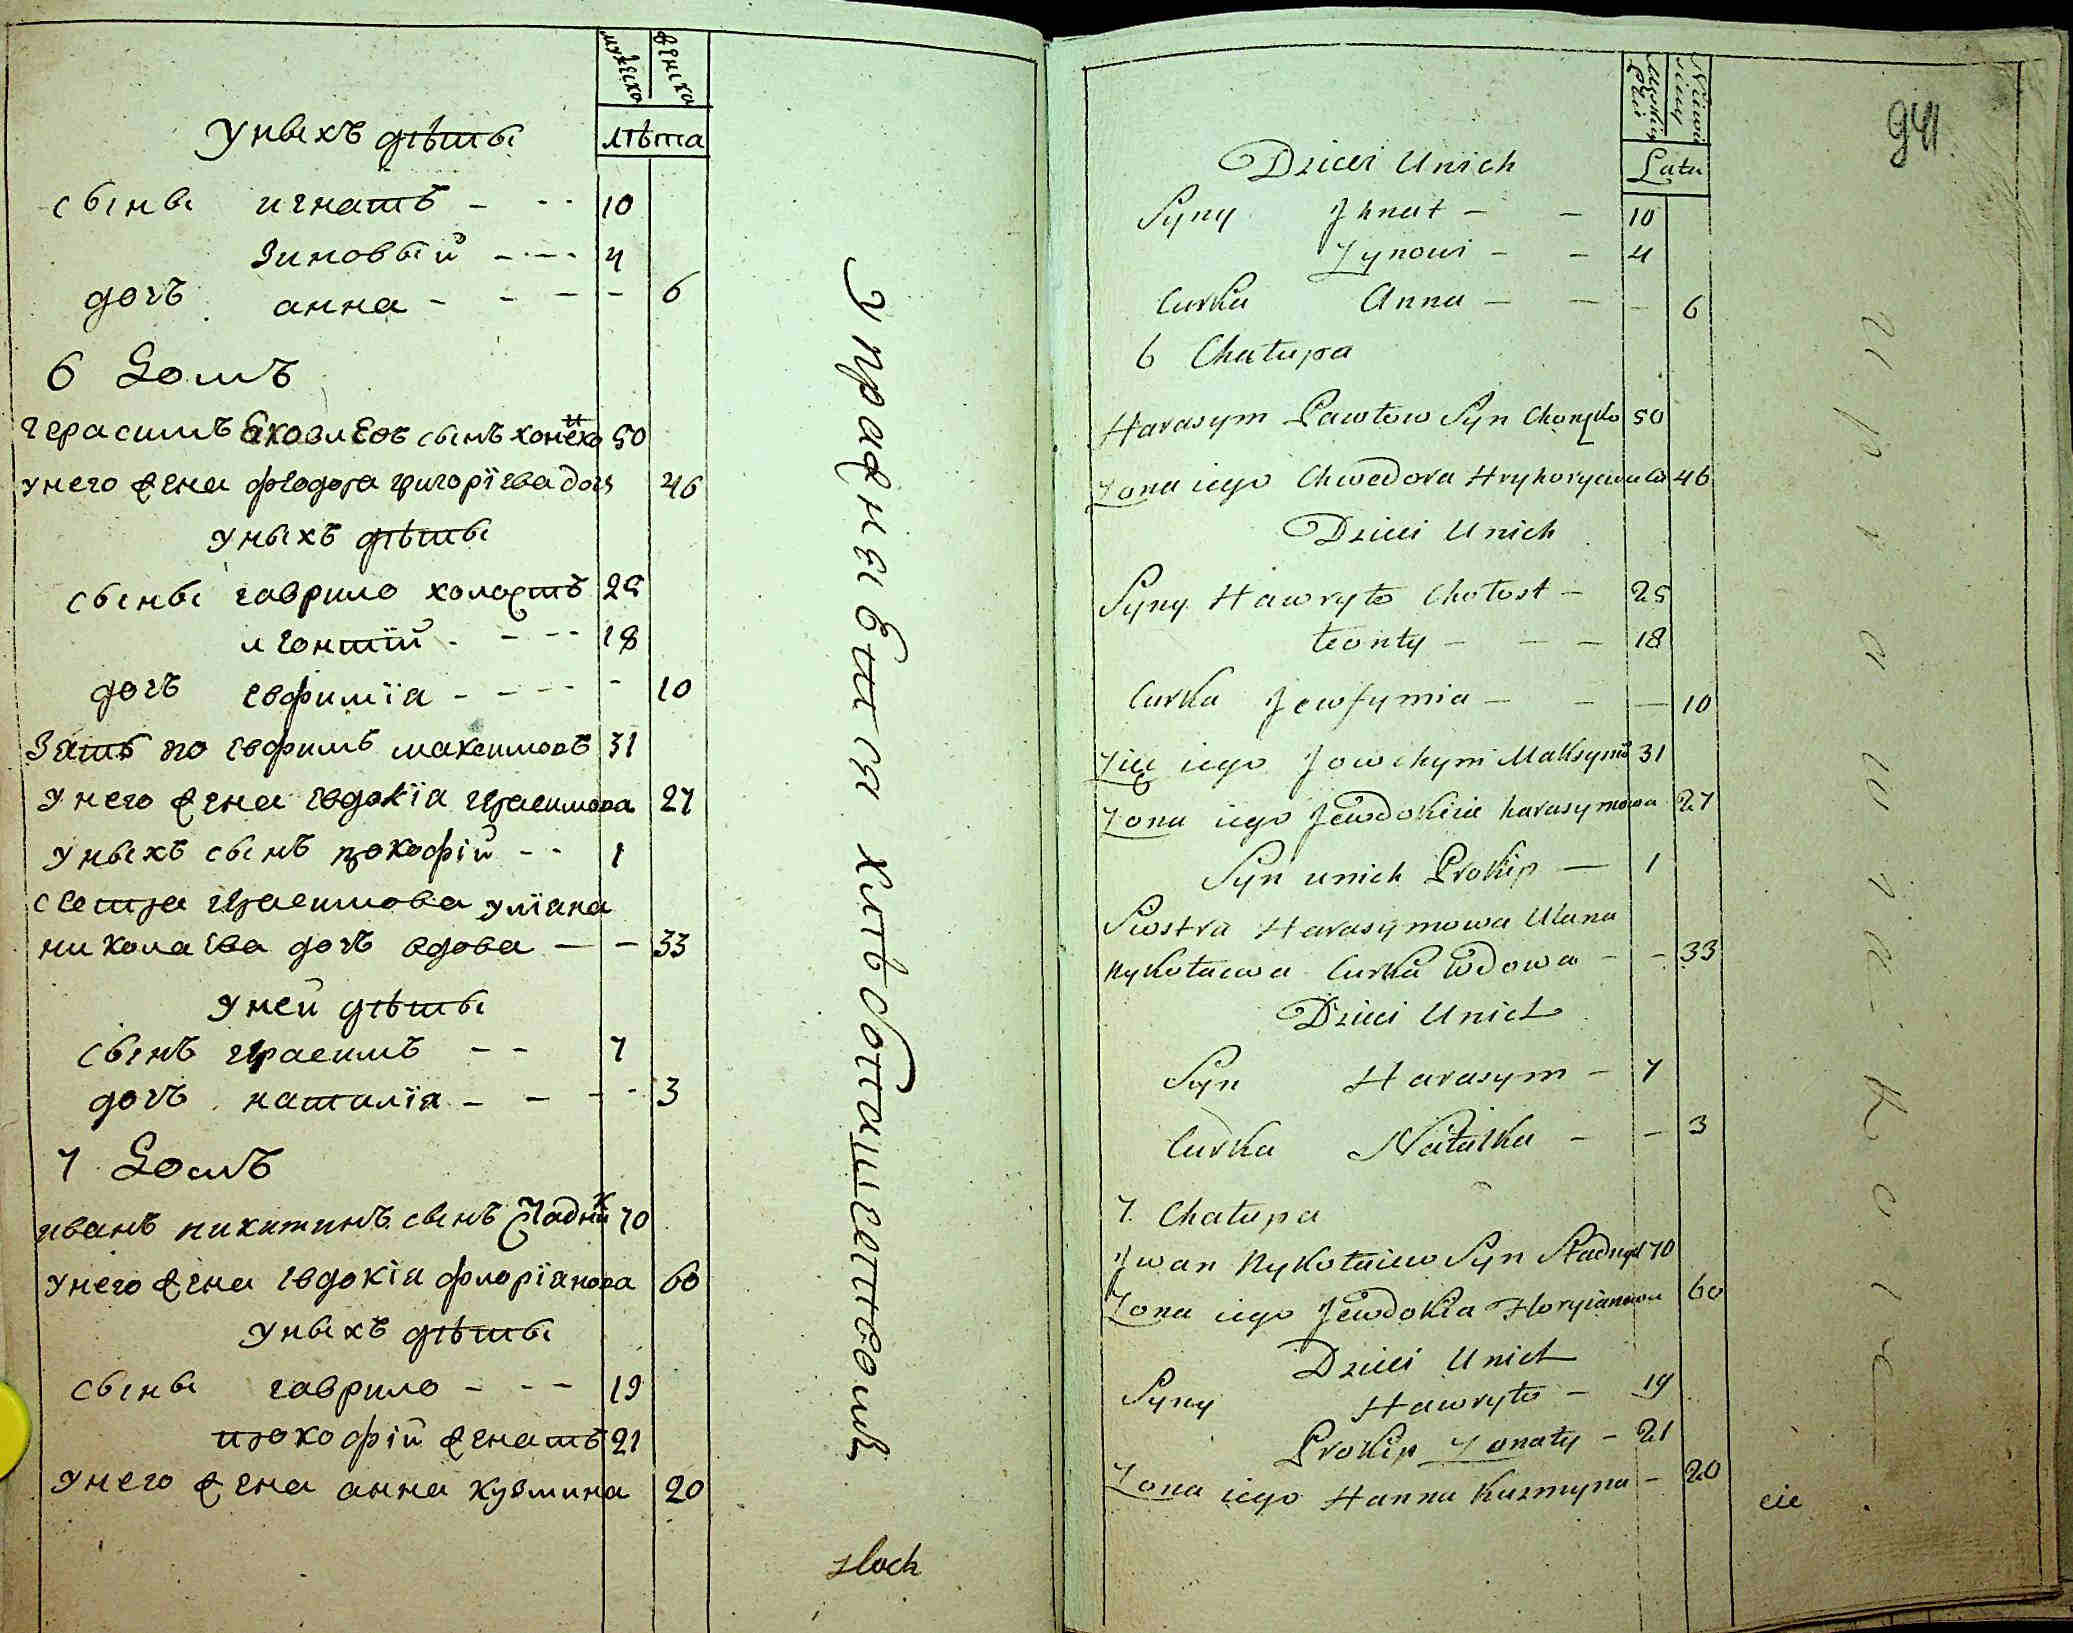 мужеска женска
лѣта
У ныхъ дѣты
сыны игнатъ - - - 10
Зиновый - - - 4
дочь анна - - - - 6
6 Домъ
герасимъ яковлевъ сынъ 50
у него жена феодора григорїева дочь 46
у ныхъ дѣты
сыны гаврило холостъ 25
леонтїй - - - 18
дочь евфимїа - - - - 10
Зать его евфимъ максимовъ 31
у него жена евдокїа герасимова 27
у ныхъ сынъ прокофїй - - 1
сестра герасимова улїана
николаева дочь вдова - - 33
у ней дѣты
сынъ герасимъ - - 7
дочь наталїа - - - - 3
7 Домъ
иванъ никитинъ сынъ Стадник 70
у него жена евдокїа флорїанова 60
у ныхъ дѣты
сыны гаврило - - - 19
прокофїй женатъ 21
у него жена анна кузмина 20
Упражняется хлѣбопашеством
94
Lata
Dzieci Unich
Syny Jhnat - - 10
Zynowi - - 4
Curka Anna - - - 6
6 Chałupa
Harasym Pawłow Syn 50
Zona iego Chwedora Hryhorycwa 46
Dzieci Unich
Syny Hawryło Chołost - 25
Leonty - - - 18
Curka Jewfymia - - - 10
Zięć iego Jowchym Maksymów 31
Zona iego Jewdokia harasymowa 27
Syn unich Prokip - 1
Siostra Harasymowa Ulana
Nykołaiewa Curka Wdowa - - 33
Dzieci Unich
Syn Harasym - 7
Curka Natałka - - 3
7. Chałupa
Jwan Nykołaiew Syn Stadnyk 70
Zona iego Jewdokia Floryianowa 60
Dzieci Unich
Syny Hawryło - 19
Prokip Zonaty - 21
Zona iego Hanna Kuzmyna - 20